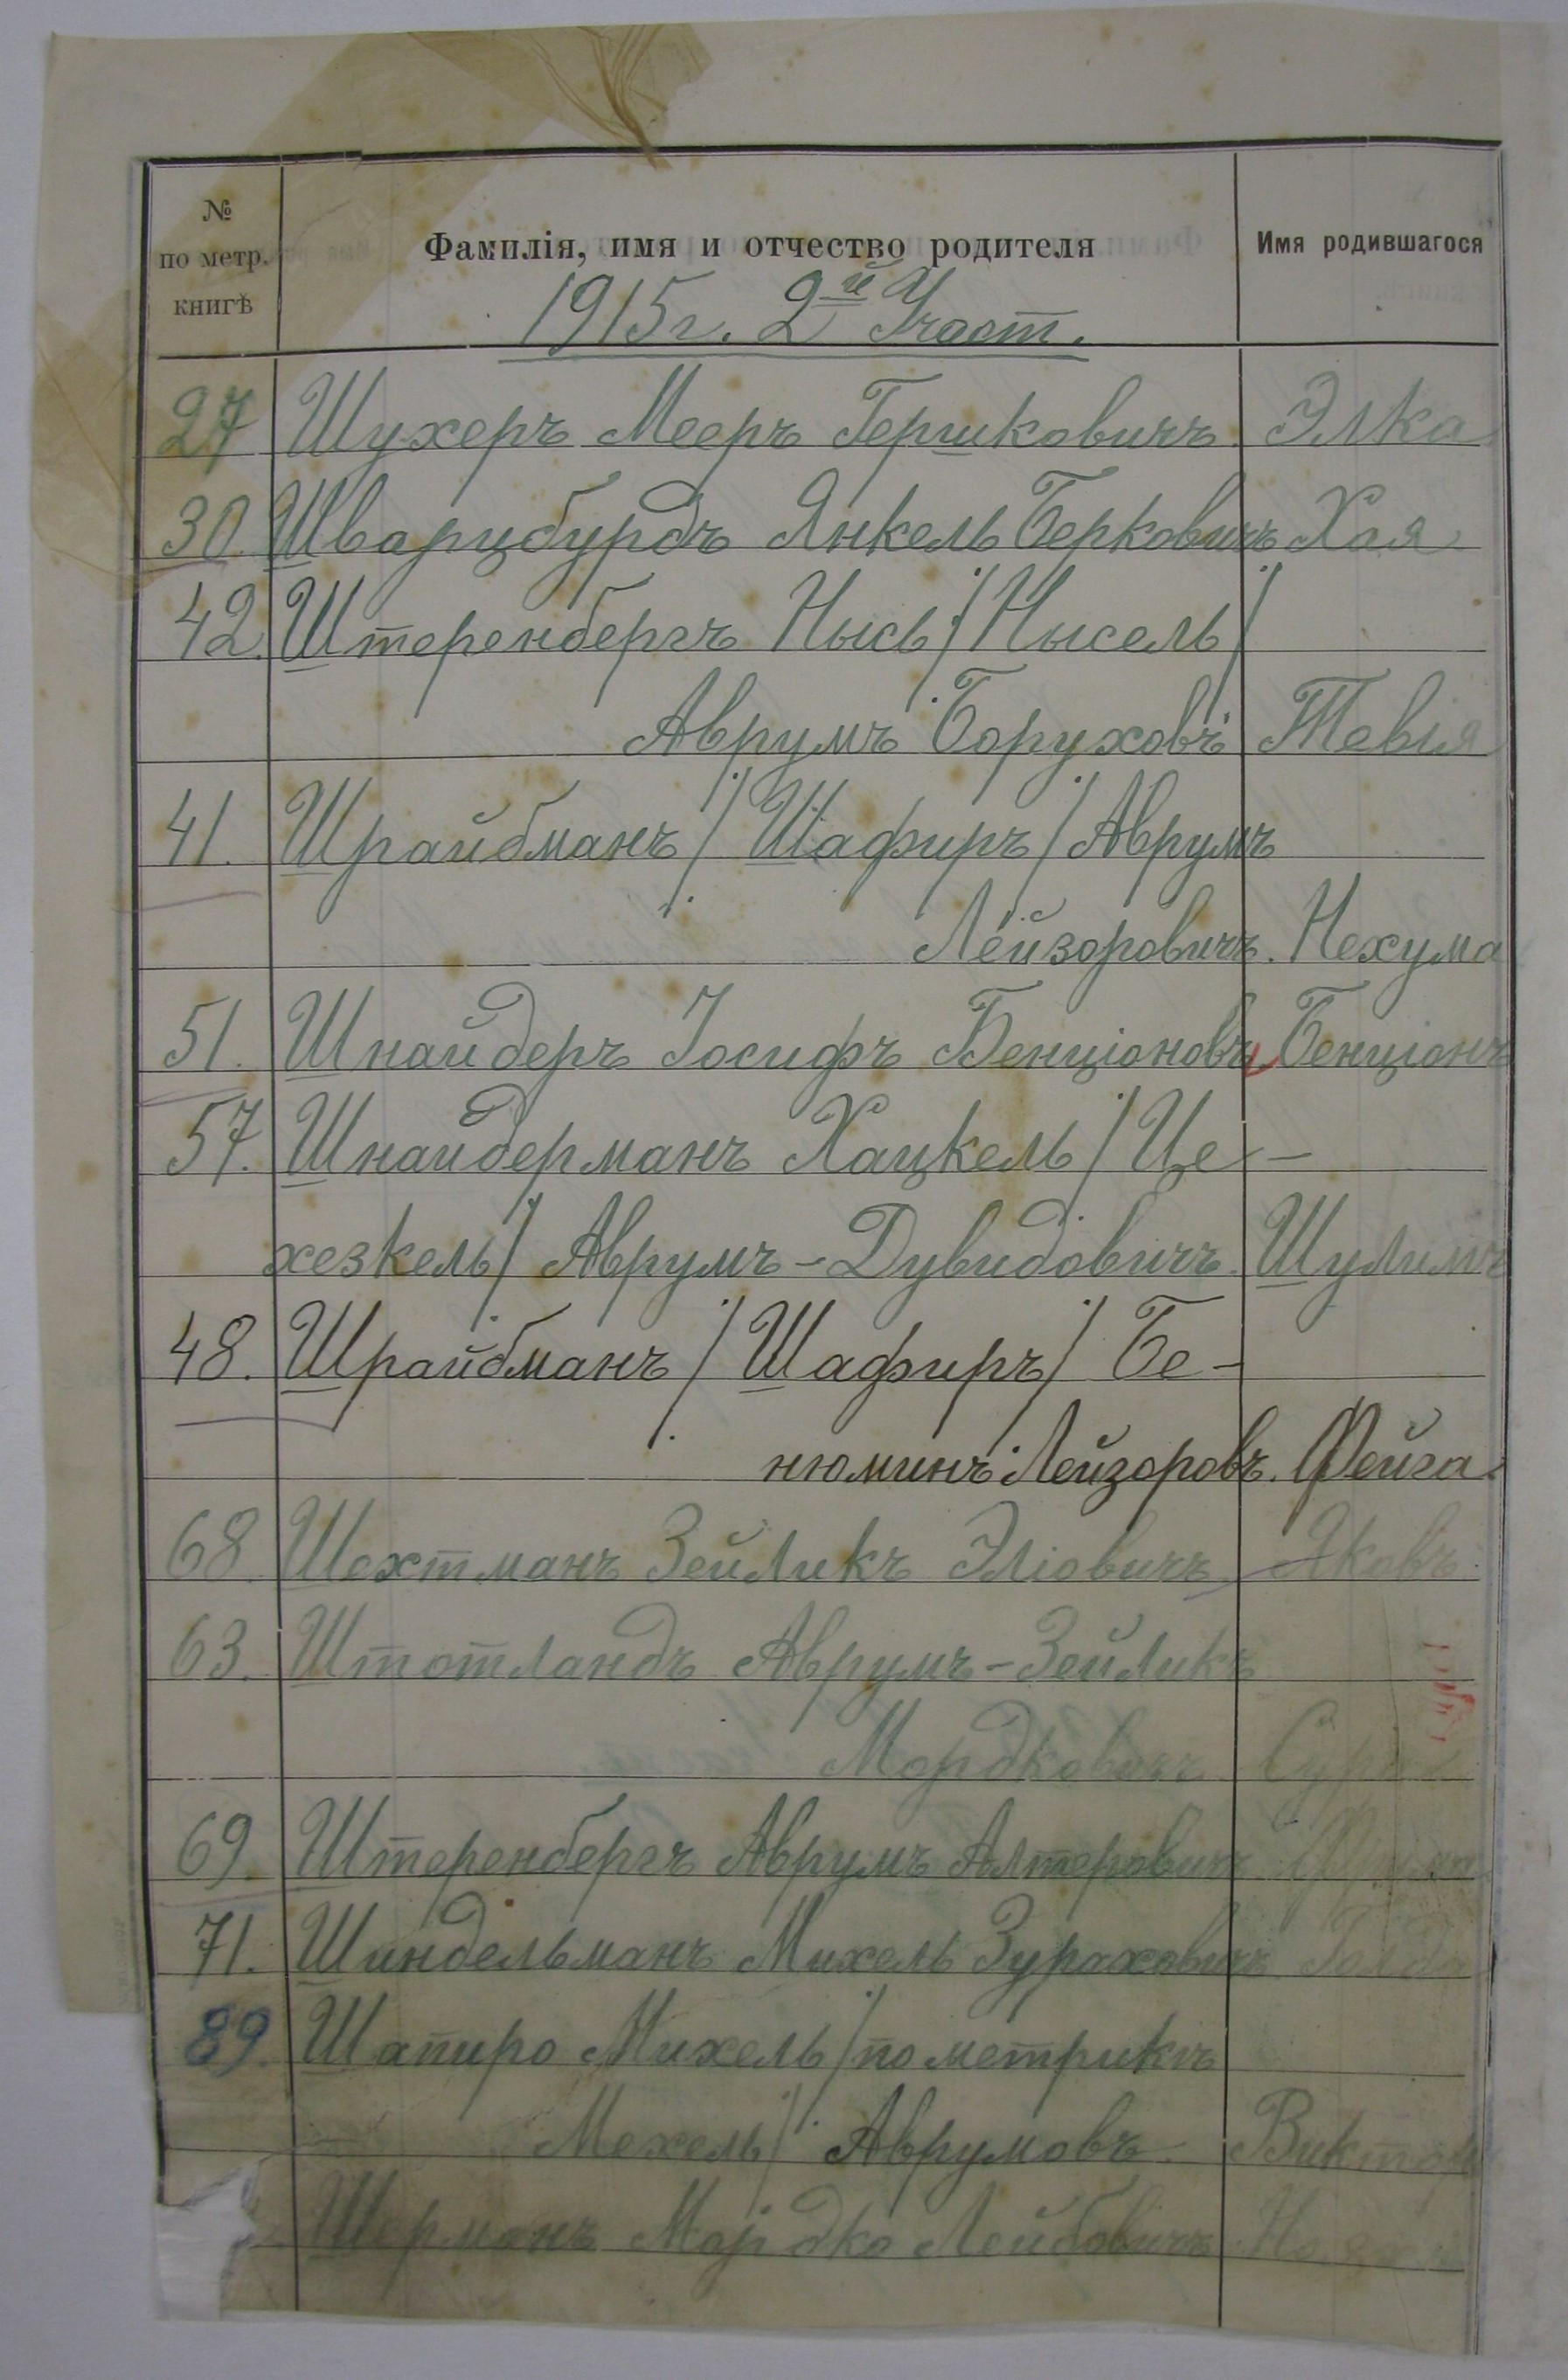 № по метр. книгѣ
Фамилія, имя и отчество родителя
Имя родившагося
1915 г. 2й Участ.
27 Шухеръ Мееръ Гершковичъ Элка
30 Шварцбурдъ Янкель Берковичъ Хая
42. Штеренбергъ Нысь /Нысель/
Аврумъ Борухов. Тевія
41. Шрайбманъ /Шафиръ/ Аврумъ
Лейзоровичъ. Нехума
51. Шнайдеръ Іосифъ Бенціоновъ Бенціонъ
57. Шнайдерманъ Хацкель /Це-
хезкель/ Аврумъ-Дувидовичъ. Шулимъ
48. Шрайбманъ /Шафиръ/ Бе-
нюминъ Лейзоровъ. Фейга
68. Шехтманъ Зейликъ Эліовичъ Яковъ
63. Штотландъ Аврумъ-Зейликъ
Мордковичъ Сура
69. Штеренбергъ Аврумъ Алтеровичъ
71. Шиндельманъ Михель Зураховичъ Голда
89. Шапиро Михель /по метрикѣ
Мехель/ Аврумовъ Викторъ
Шерманъ Мордко Лейбовичъ